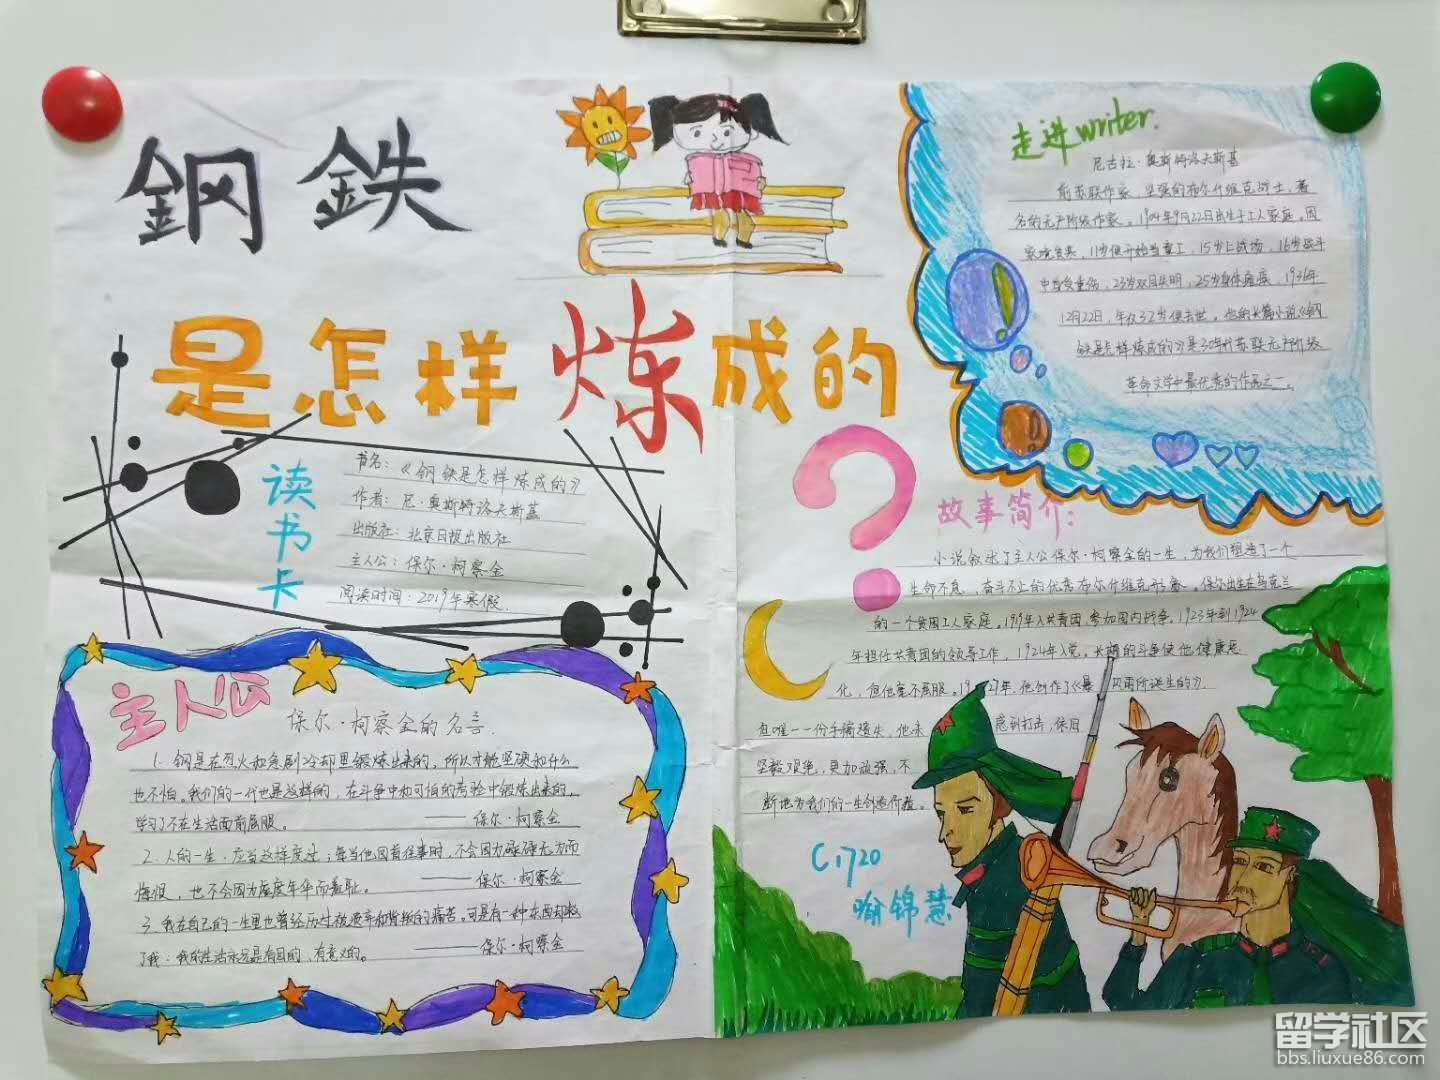 鋼鉄
是怎样炼成的
读书卡
书名：《钢铁是怎样炼成的》
作者：尼·奥斯特洛夫斯基
出版社：北京日报出版社
主人公：保尔·柯察金
阅读时间：2019年寒假.
主人公
保尔·柯察金的名言.
1. 钢是在烈火和急剧冷却里锻炼出来的，所以才能坚硬和什么
也不怕。我们的一代也是这样的，在斗争中和可怕的考验中锻炼出来的，
学习了不在生活面前屈服。 ——保尔·柯察金
2. 人的一生，应当这样度过：每当他回首往事时，不会因为碌碌无为而
悔恨，也不会因为虚度年华而羞耻。 ——保尔·柯察金
3. 我在自己的一生里也曾经历过被遗弃和背叛的痛苦。可是有一种东西却救
了我：我的生活永远是有目的、有意义的。 ——保尔·柯察金
走进writer.
尼古拉·奥斯特洛夫斯基
前苏联作家，坚强的布尔什维克战士，著
名的无产阶级作家。1904年9月22日出生于工人家庭，因
家境贫寒，11岁便开始当童工，15岁上战场，16岁战斗
中曾受重伤，23岁双目失明，25岁身体瘫痪，1936年
12月22日，年仅32岁便去世。他的长篇小说《钢
铁是怎样炼成的》是30年代苏联无产阶级
革命文学中最优秀的作品之一。
故事简介：
小说叙述了主人公保尔·柯察金的一生，为我们塑造了一个
生命不息，奋斗不止的优秀布尔什维克形象。保尔出生在乌克兰
的一个贫困工人家庭。1919年入共青团，参加国内战争。1923年到1924
年担任共青团的领导工作，1924年入党。长期的斗争使他健康恶
化，但他毫不屈服。19 27年，他创作了《暴 风雨所诞生的》
但唯一一份手稿遗失，他未 感到打击，依旧
坚毅艰绝，更加顽强，不
断地为我们的一生创造价值。
C1720
喻锦慧
留学社区
bbs.liuxue86.com